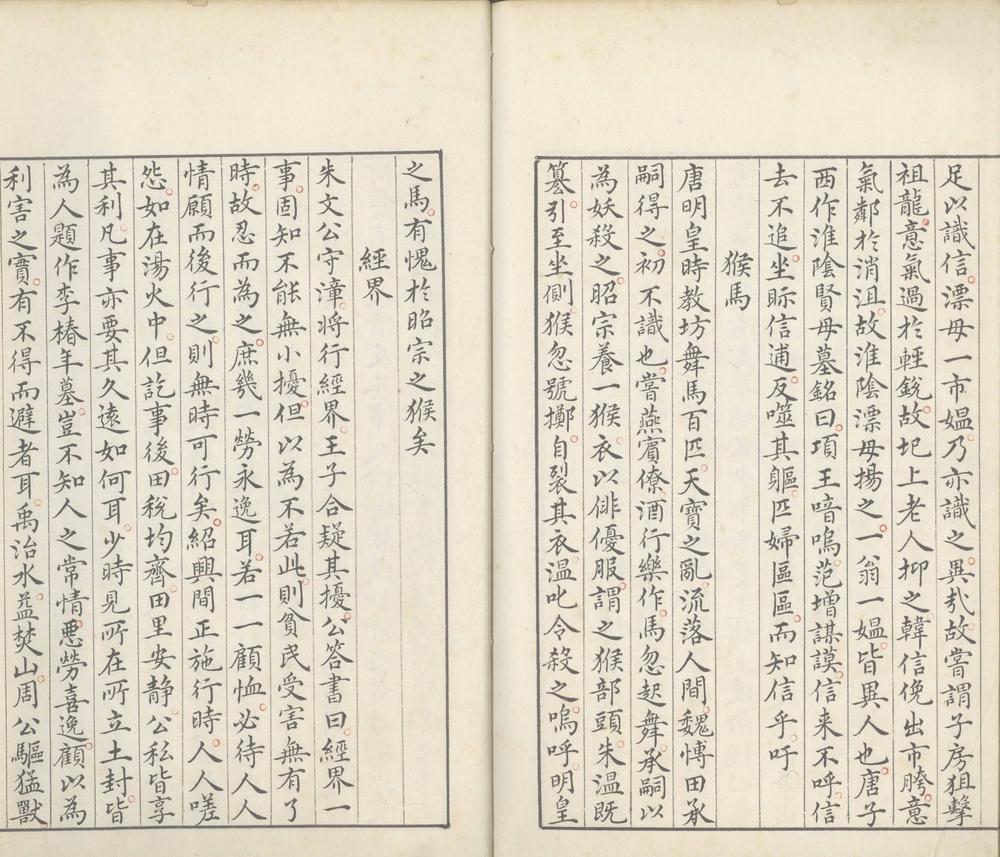 足以識信漂母一市媼乃亦識之異哉故嘗謂子房狙擊
祖龍意氣過於輕銳故圯上老人抑之韓信俛出市胯意
氣鄰於消沮故淮陰漂母揚之一翁一媼皆異人也唐子
西作淮陰賢母墓銘曰項王喑嗚范增謀謨信来不呼信
去不追坐眎信逋反噬其軀匹婦區區而知信乎吁
猴馬
唐明皇時教坊舞馬百匹天寶之亂流落人間魏愽田承
嗣得之初不識也嘗燕賓僚酒行樂作馬忽起舞承嗣以
為妖殺之昭宗養一猴衣以俳優服謂之猴部頭朱溫既
簒引至坐側猴忽號擲自裂其衣溫叱令殺之嗚呼明皇
之馬有愧於昭宗之猴矣
經界
朱文公守漳将行經界王子合疑其擾公答書曰經界一
事固知不能無小擾但以為不若此則貧民受害無有了
時故忍而為之庶幾一勞永逸耳若一一顧恤必待人人
情願而後行之則無時可行矣紹興間正施行時人人嗟
怨如在湯火中但訖事後田稅均齊田里安静公私皆享
其利凡事亦要其久遠如何耳少時見所在所立土封皆
為人題作李椿年墓豈不知人之常情惡勞喜逸顧以為
利害之實有不得而避者耳禹治水益焚山周公驅猛獸